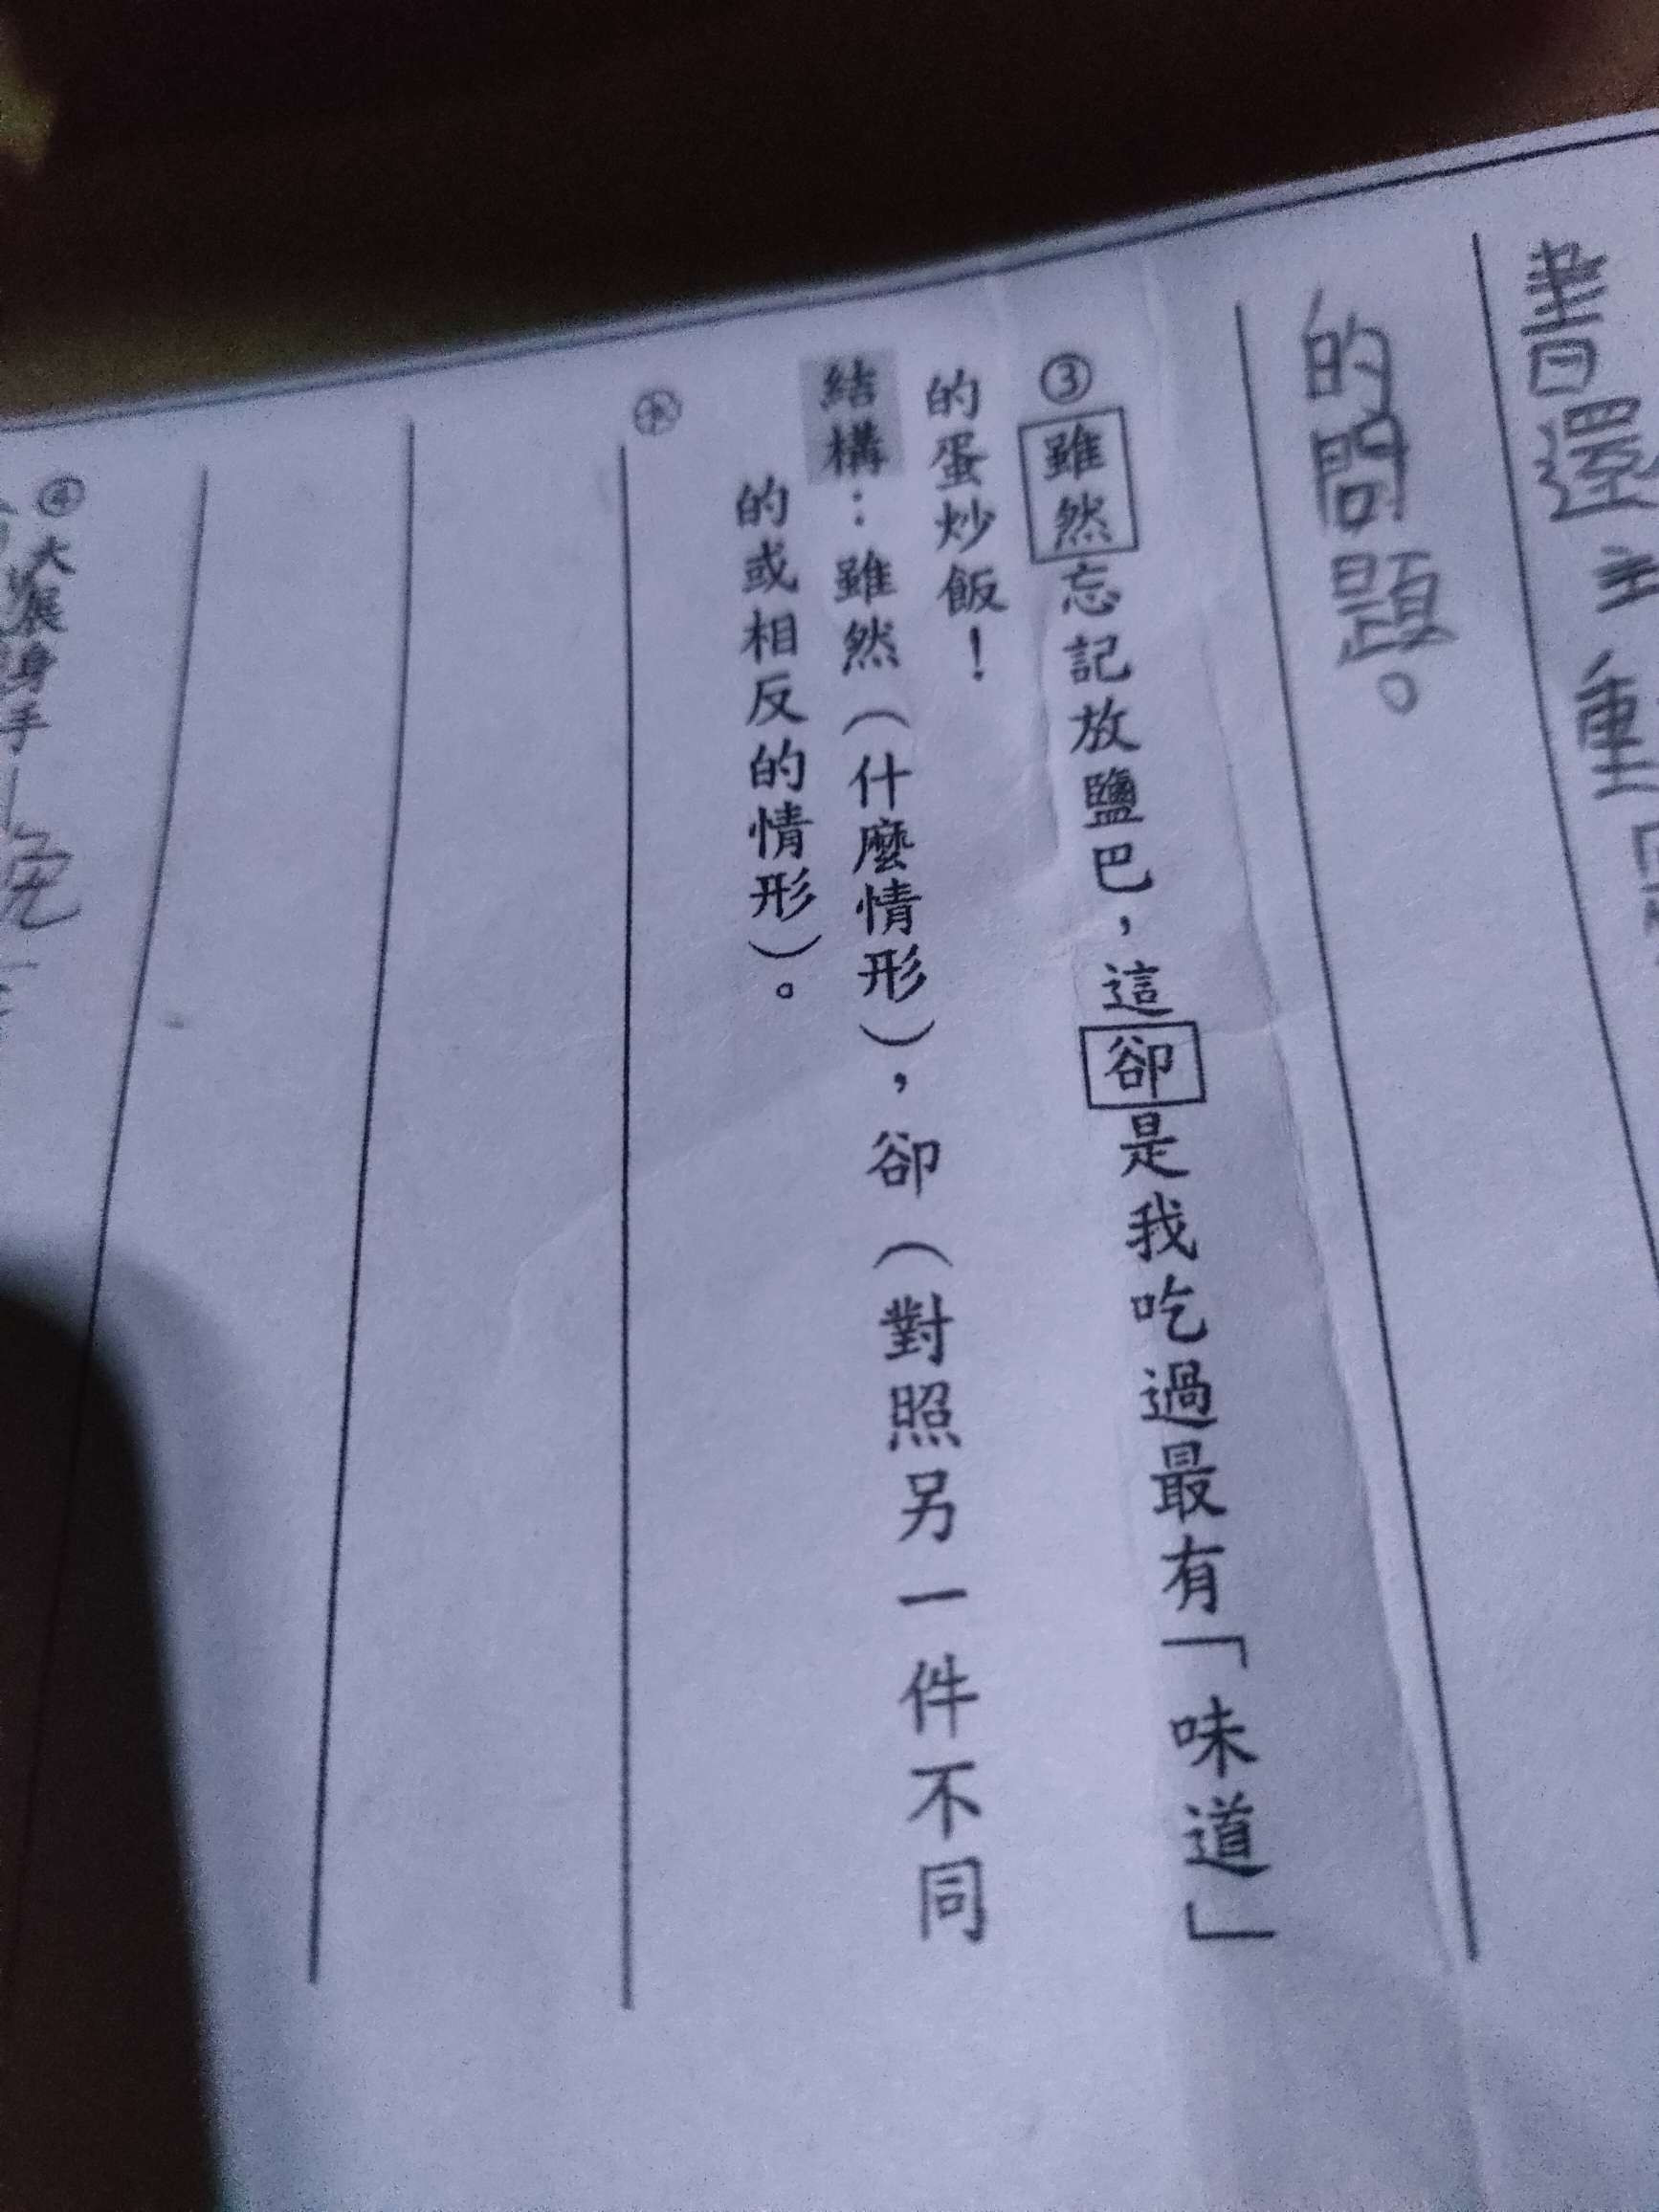 書還
重
的問題。
③雖然忘記放鹽巴,這卻是我吃過最有「味道」
的蛋炒飯!
結構:雖然(什麼情形),卻(對照另一件不同
的或相反的情形)。
④大展身手